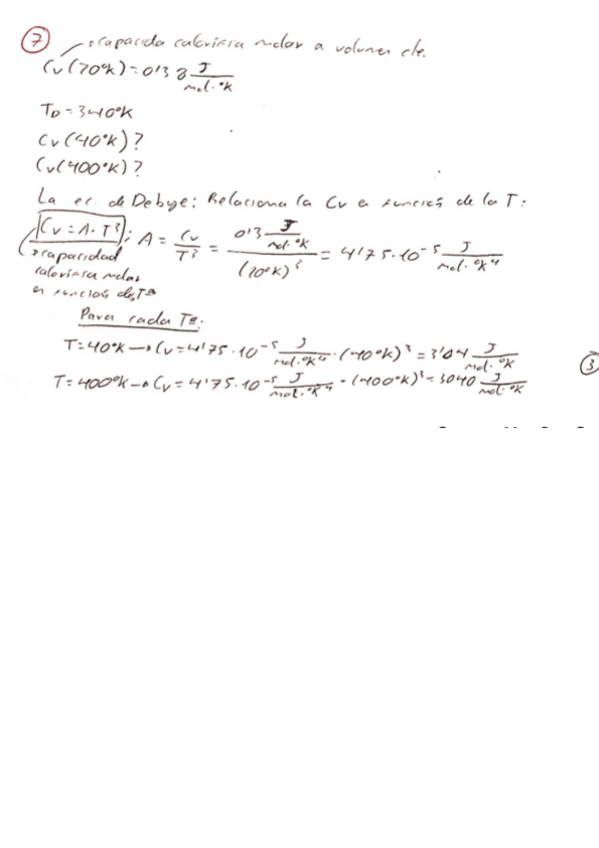 7 capacida calorífica molar a volumen cte.
Cv(20°K)=0'38 J/mol.°K
TD=340°K
Cv(40°K)?
Cv(400°K)?
La ec. de Debye: Relaciona la Cv en función de la T:
Cv=A.T³; A = Cv/T³ = 0'38 J/mol.°K / (20°K)³ = 4'75.10⁻⁵ J/mol.°K⁴
capacidad
calorífica molar
en función de Tª
Para cada Tª:
T=40°K→Cv=4'75.10⁻⁵ J/mol.°K⁴ . (40°K)³ = 3'04 J/mol.°K
T=400°K→Cv=4'75.10⁻⁵ J/mol.°K⁴ . (400°K)³ = 3040 J/mol.°K
3